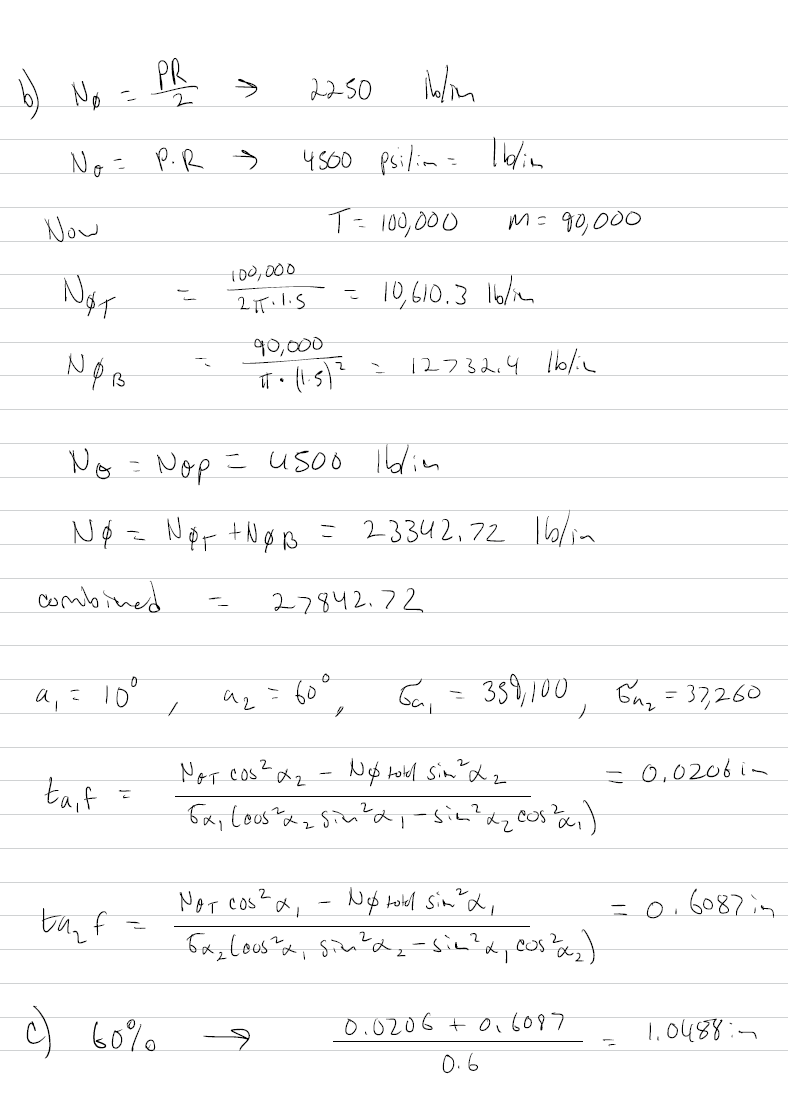 b) Nφ = PR/2 → 2250 lb/in
Nθ = P·R → 4500 psi/in = lb/in
Now T = 100,000 M = 90,000
NφT = 100,000 / 2π·1.5 = 10,610.3 lb/in
NφB = 90,000 / π·(1.5)² = 12732.4 lb/in
Nθ = Nθp = 4500 lb/in
Nφ = NφT + NφB = 23342.72 lb/in
combined = 27842.72
a₁ = 10°, a₂ = 60°, σa₁ = , σa₂ = 37,260
ta₁f = NθT cos²α₂ − Nφ total sin²α₂ / σα₁(cos²α₂ sin²α₁ − sin²α₂ cos²α₁) = 0.0206 in
ta₂f = NθT cos²α₁ − Nφ total sin²α₁ / σα₂(cos²α₁ sin²α₂ − sin²α₁ cos²α₂) = 0.6087 in
c) 60% → 0.0206 + 0.6087 / 0.6 = 1.0488 in